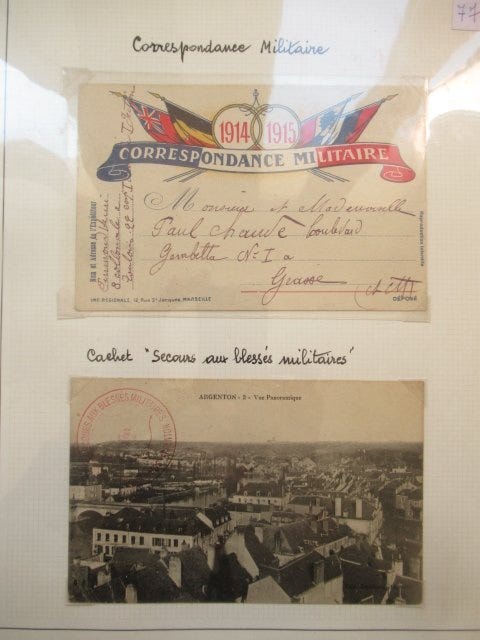 77
Correspondance Militaire
1914 1915
CORRESPONDANCE MILITAIRE
Nom et Adresse de l'Expéditeur
Monsieur et Mademoiselle
Paul Chauve boulevard
Gambetta N° I a
Grasse (A M)
Reproduction interdite
IMP. RÉGIONALE, 12, Rue St Jacques, MARSEILLE
DÉPOSÉ
Cachet "Secours aux blessés militaires"
ARGENTON - 2 - Vue Panoramique
SECOURS AUX BLESSÉS MILITAIRES